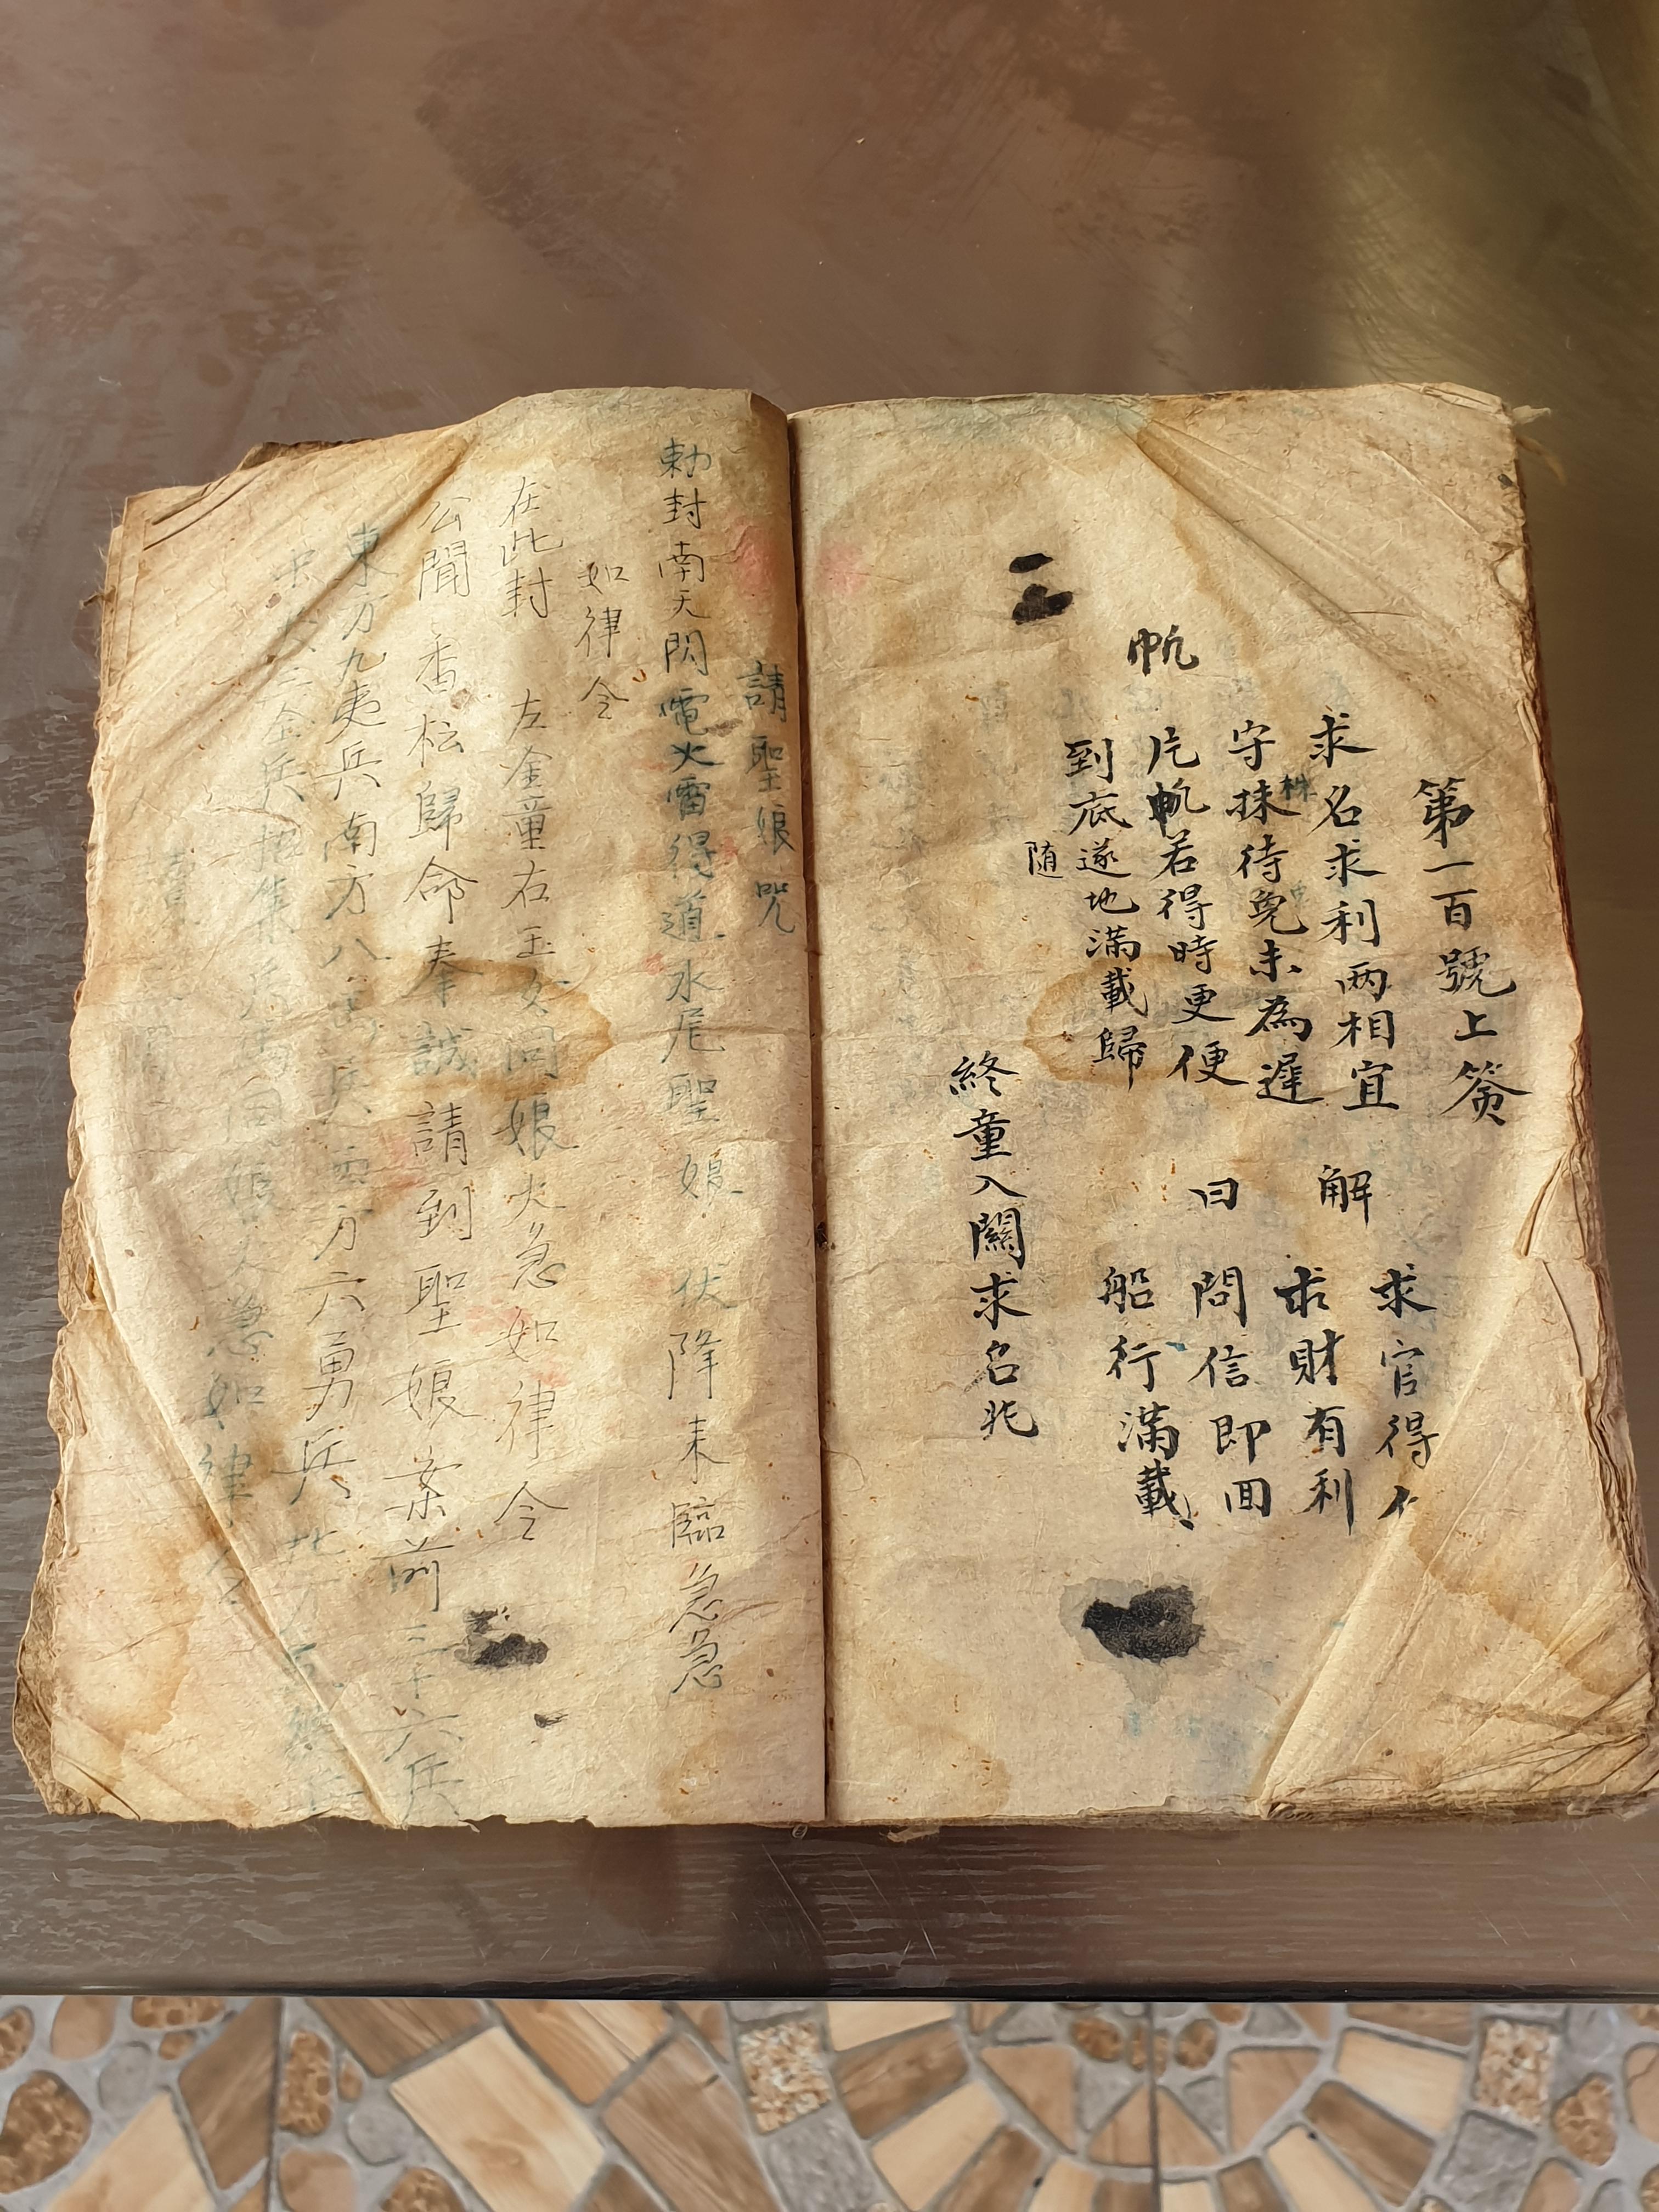 第一百號上簽
求名求利两相宜
守抹待兔未為遲
株
片帆若得時更便
帆
到底遂地滿載歸
随
解
曰
求官得
求財有利
問信即回
船行滿載
終童入關求名兆
請聖娘咒
勅封南天閃電火雷得道水尾聖娘伏降未臨急急
如律令
在此封 左金童右玉女同娘火急如律令
公聞香松歸命奉誠請到聖娘案前三十六兵
東方九夷兵南方八蛮兵西方六勇兵北方
三金兵招集兵馬同娘火急如律令